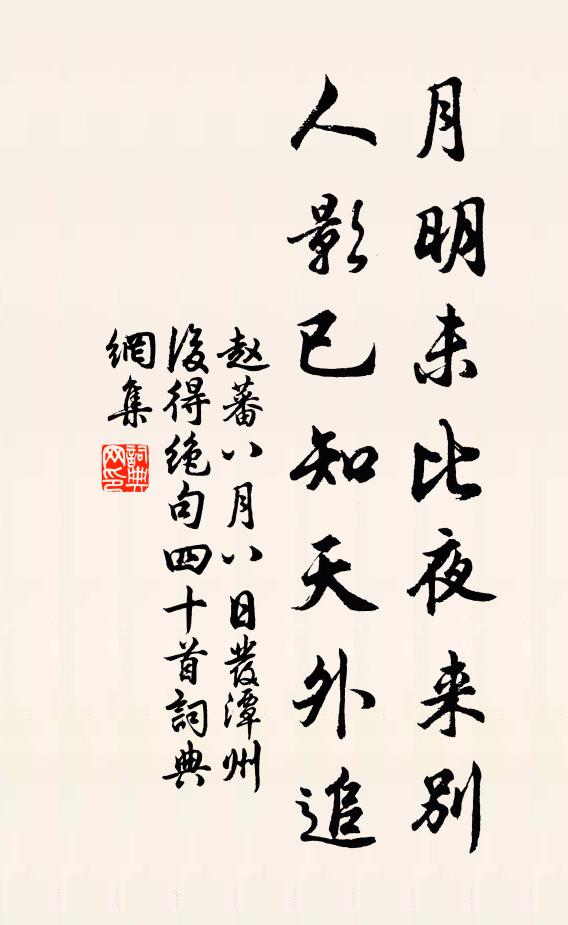 月明未比夜来别
人影已知天外追
赵蕃八月八日發潭州
後得绝句四十首詞典
網集
詞典
网印